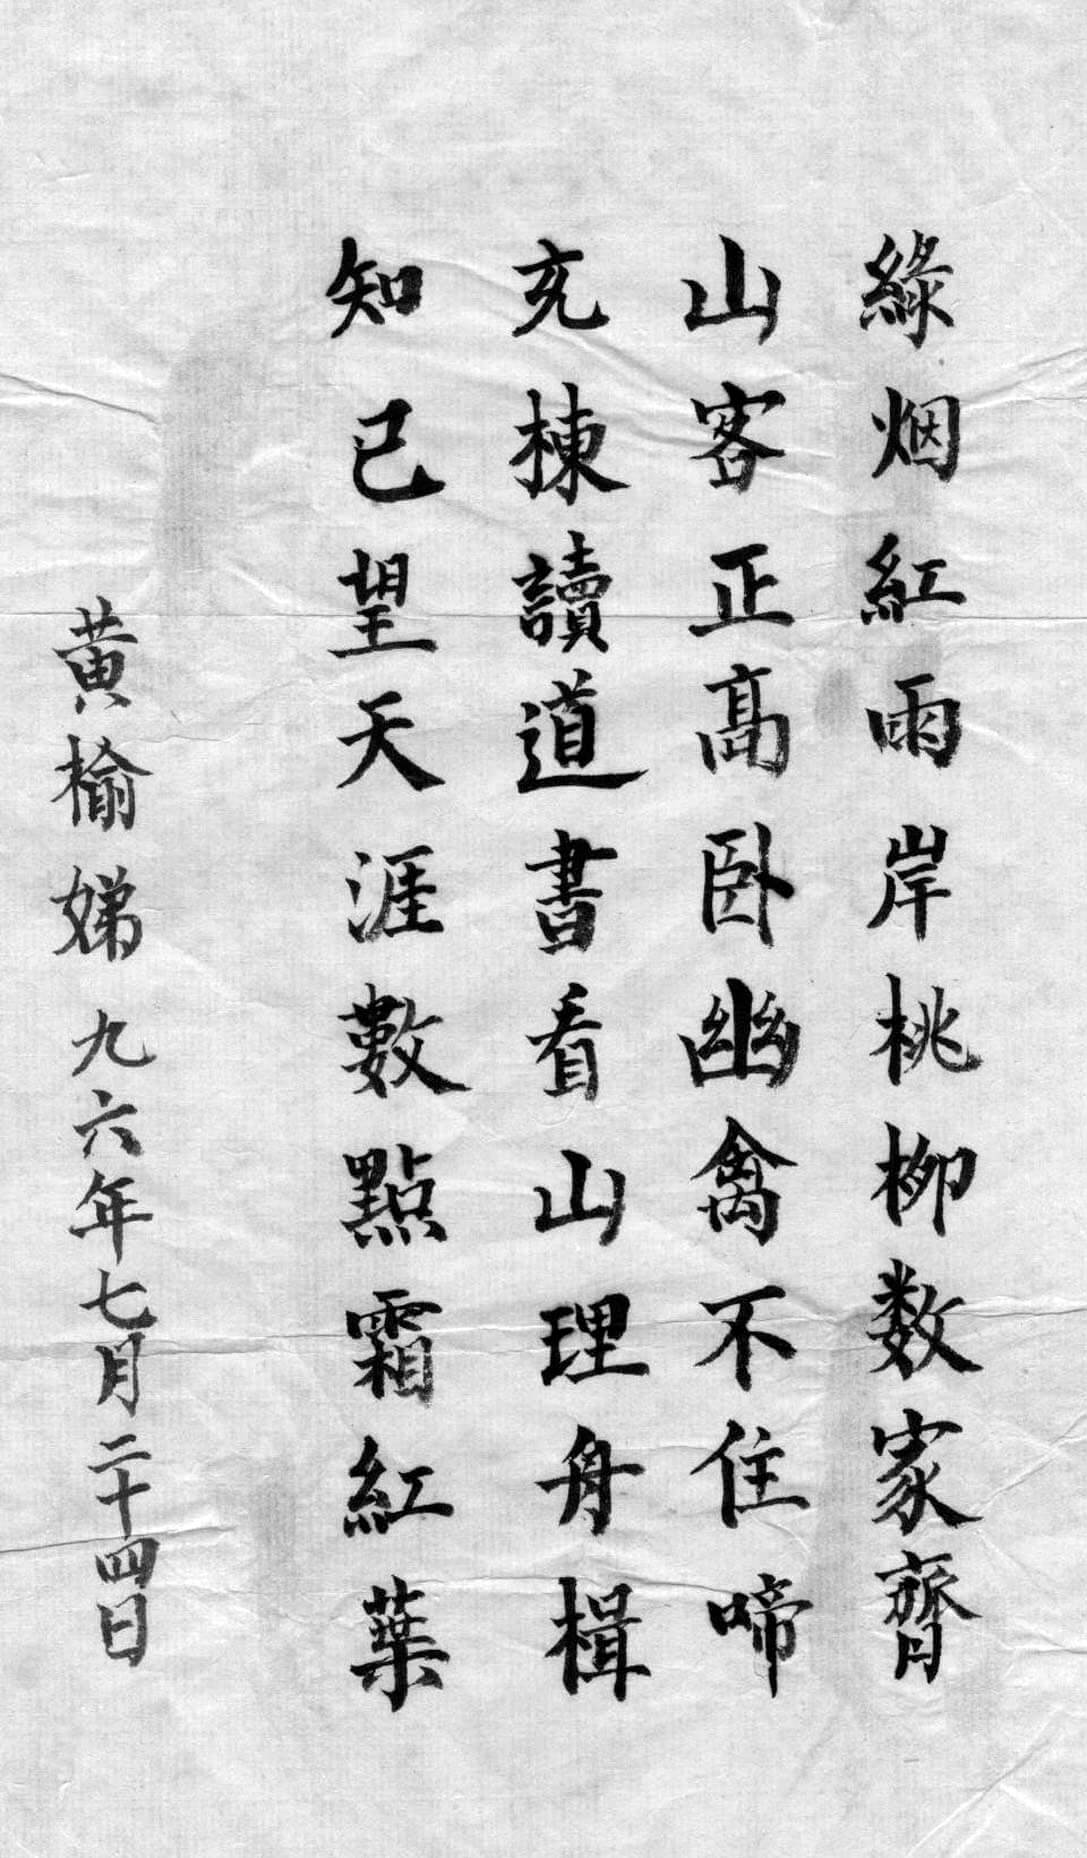 綠烟紅雨岸桃柳数家齊
山客正高卧幽禽不住啼
充棟讀道書看山理舟楫
知己望天涯數點霜紅葉
黄榆娣 九六年七月二十四日